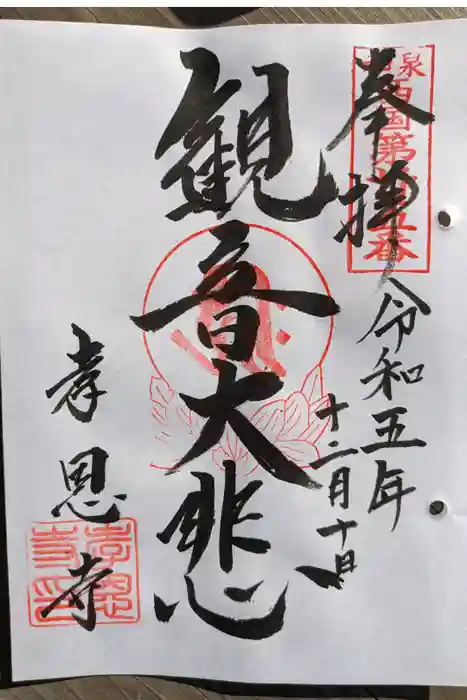 泉
西国第五番
奉拝
令和五年
十二月十日
観音大悲心
孝恩寺
孝恩
寺印